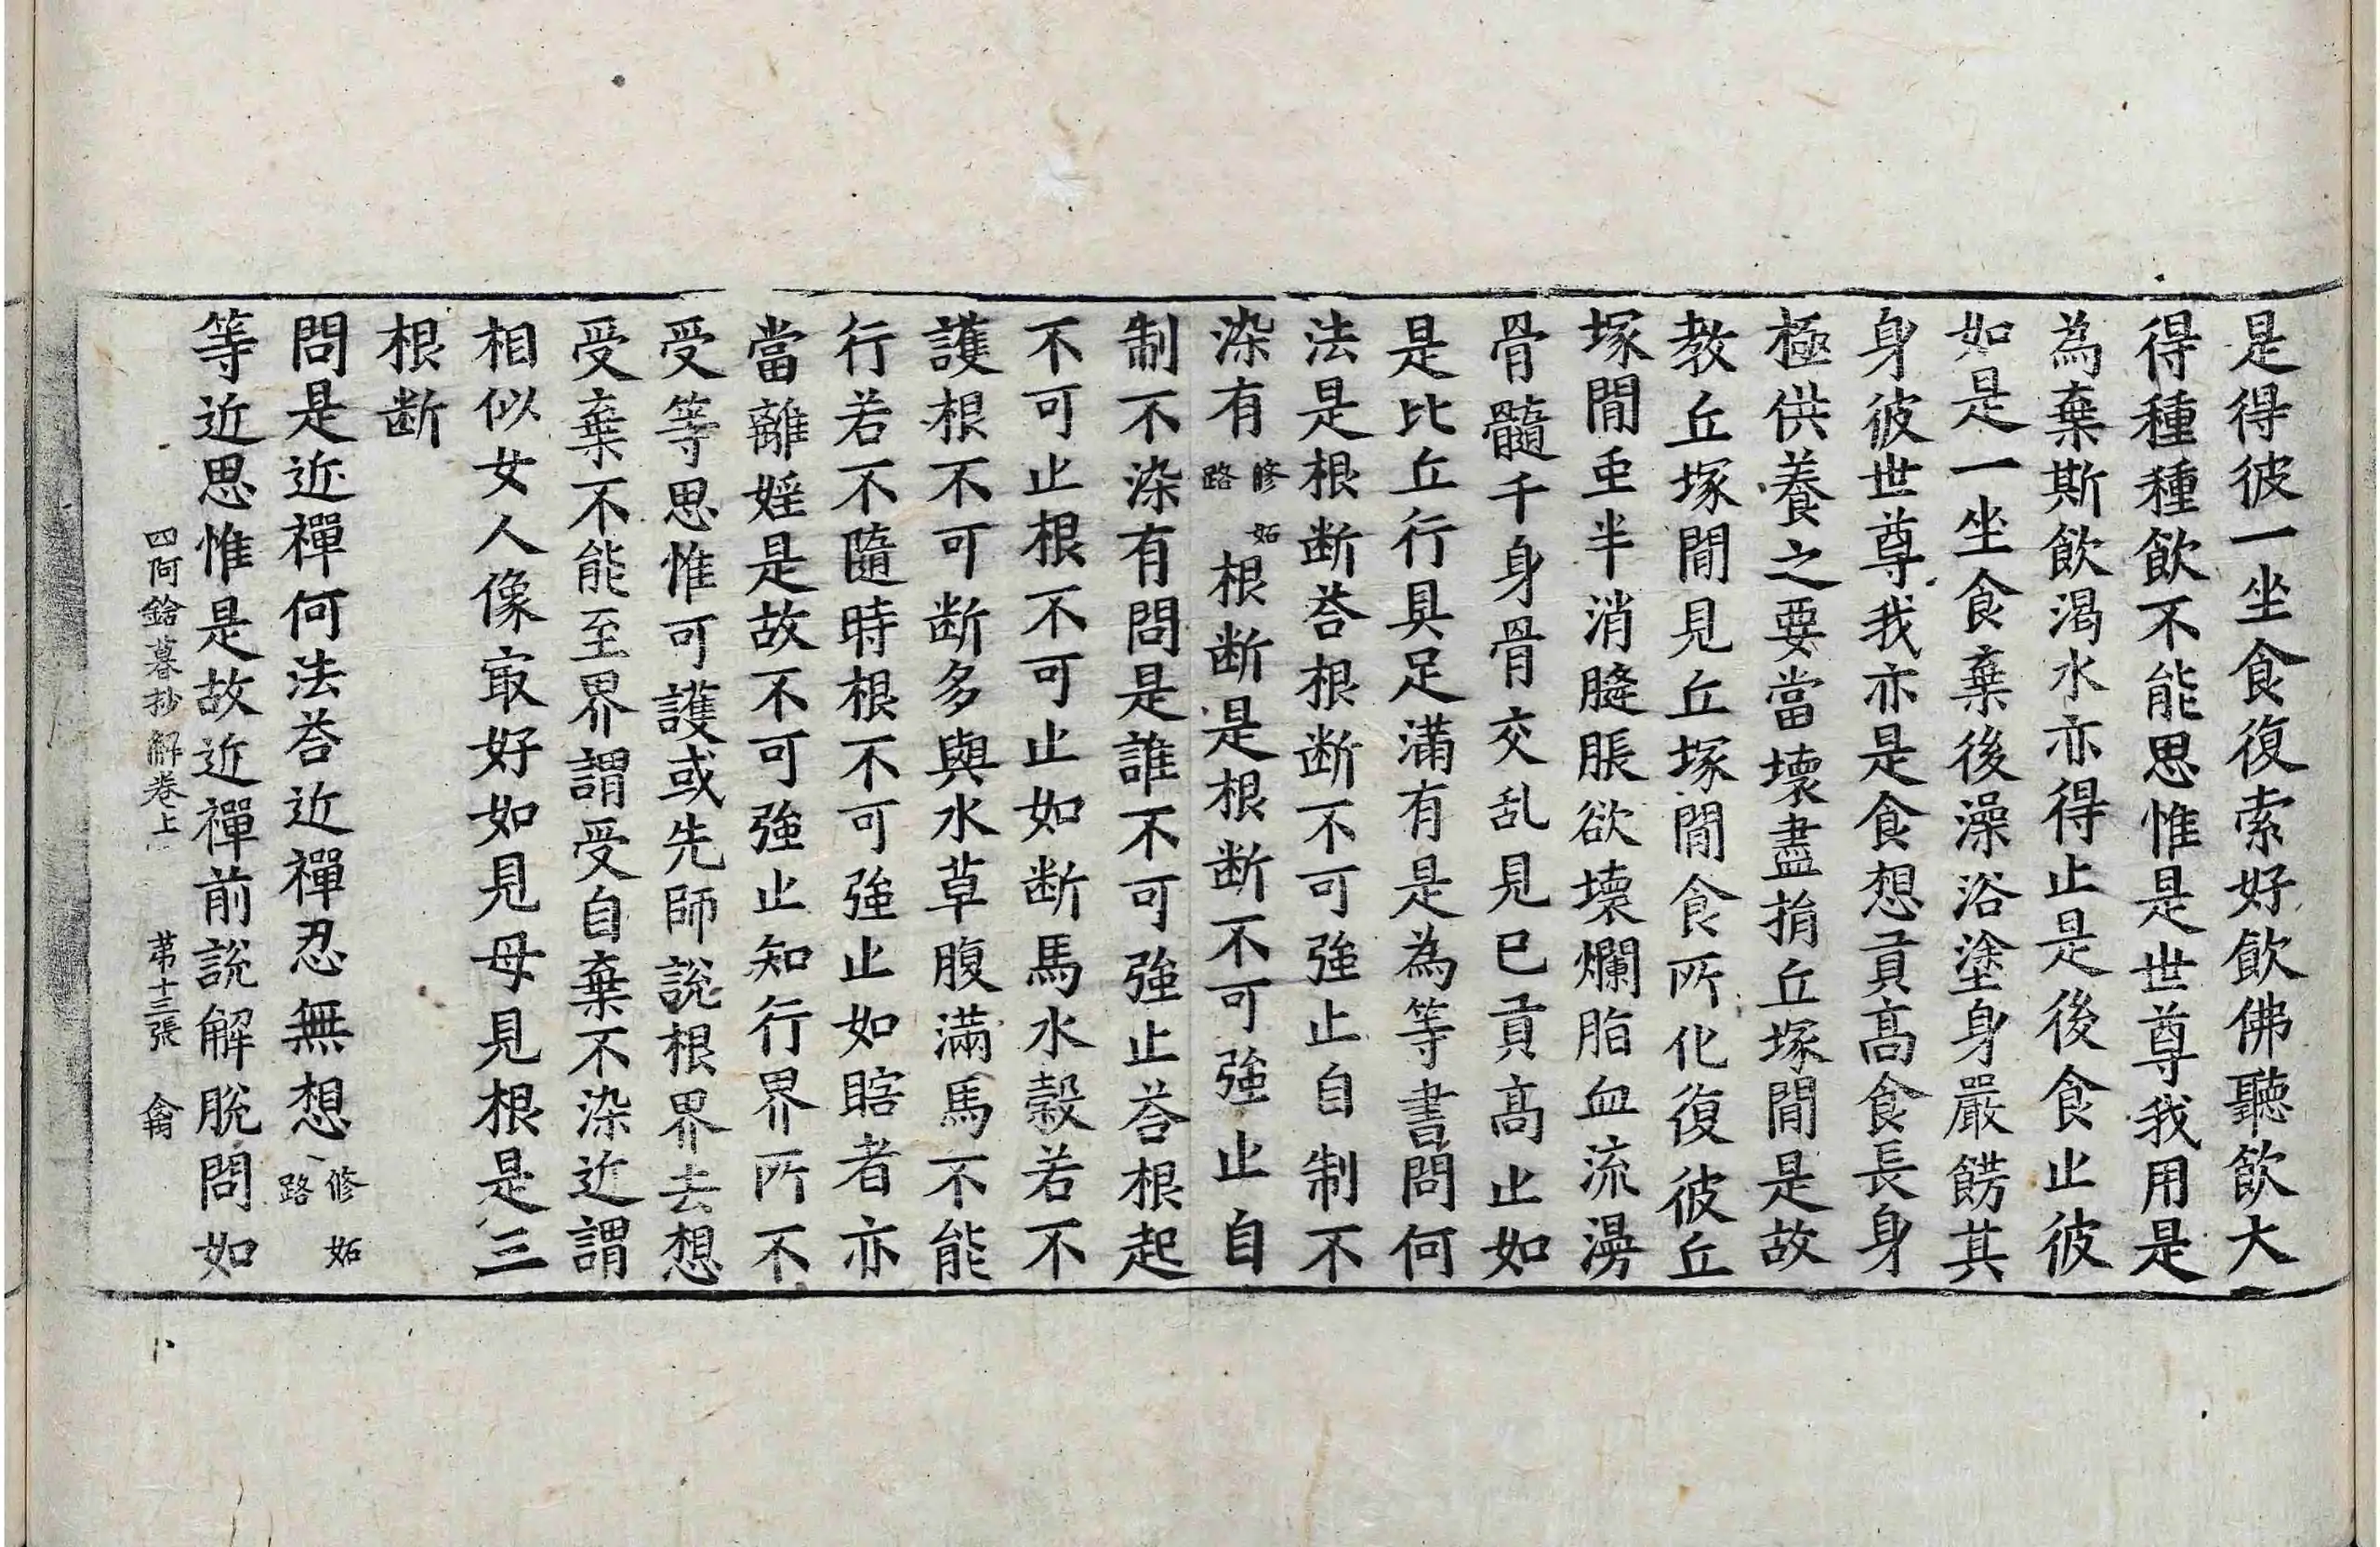 是得彼一坐食復索好飲佛聽飲大
得種種飲不能思惟是世尊我用是
為棄斯飲渴水亦得止是後食止彼
如是一坐食棄後澡浴塗身嚴餝其
身彼世尊我亦是食想貢高食長身
極供養之要當壞盡捐丘塚間是故
教丘塚間見丘塚間食所化復彼丘
塚間亟半消膖脹欲壞爛脂血流漫
骨髓千身骨交乱見已貢高止如
是比丘行具足滿有是為等書問何
法是根断荅根断不可強止自制不
染有修妬路根断是根断不可強止自
制不染有問是誰不可強止荅根起
不可止根不可止如断馬水穀若不
護根不可断多與水草腹滿馬不能
行若不隨時根不可強止如瞎者亦
當離婬是故不可強止知行界所不
受等思惟可護或先師說根界去想
受棄不能至界謂受自棄不染近謂
相似女人像㝡好如見母見根是三
根断
問是近禪何法荅近禪忍無想修妬路
等近思惟是故近禪前說解脫問如
四阿鋡暮抄解卷上 苐十三張 龠